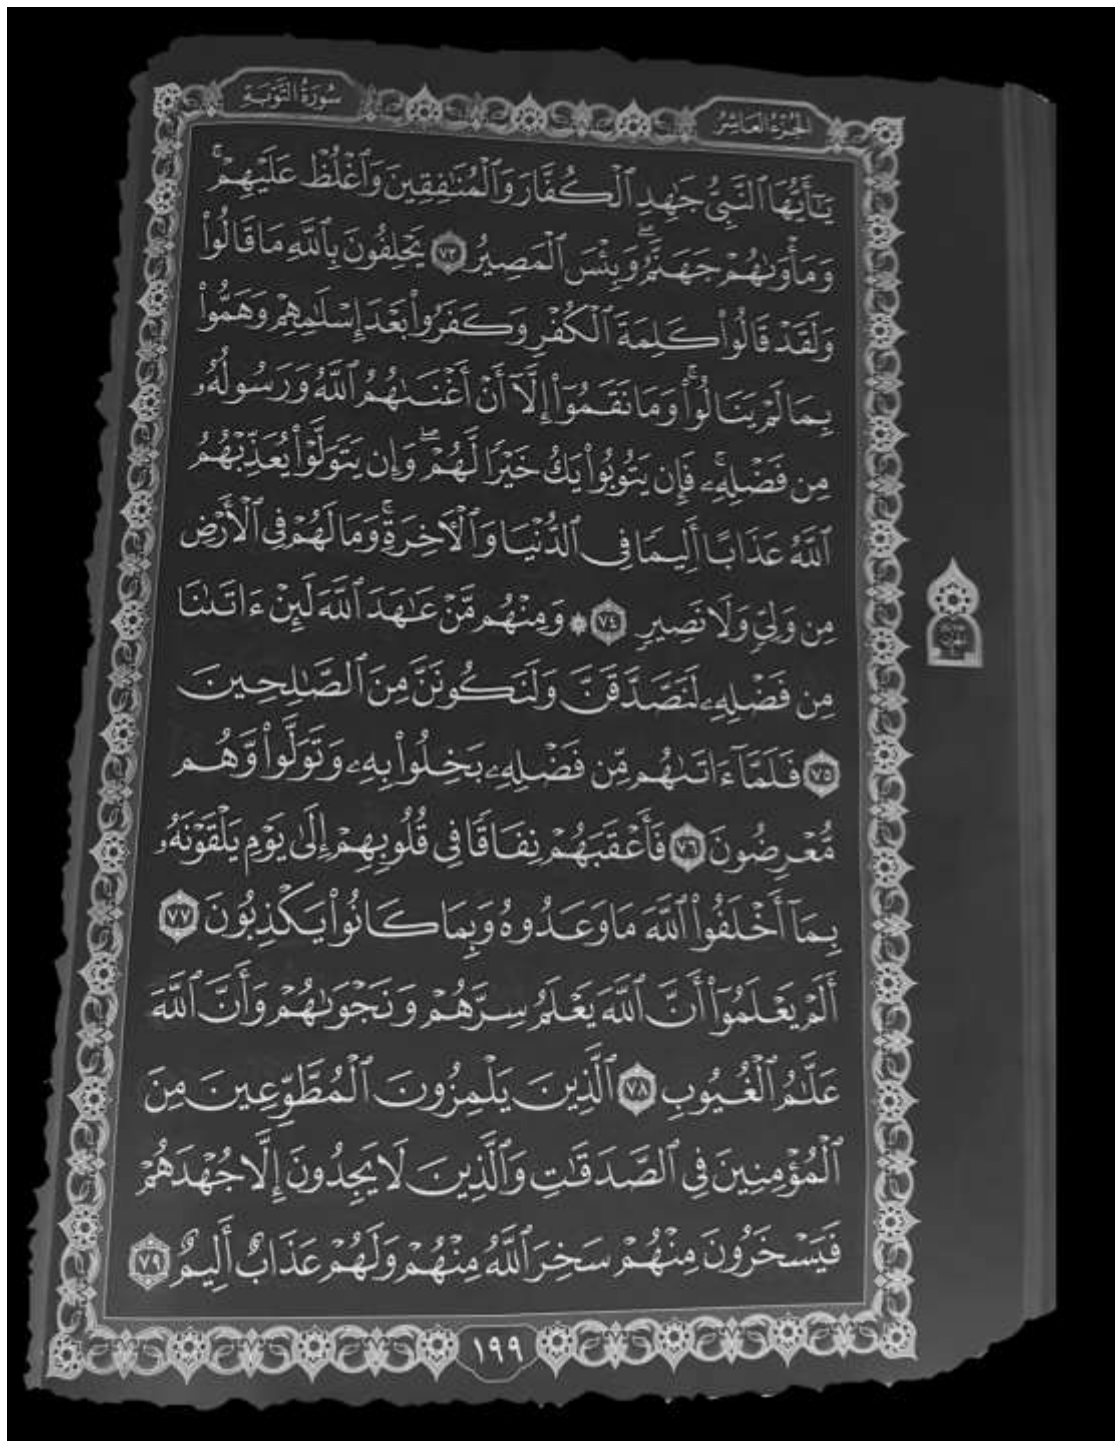 الجزء العاشر
سورة التوبة
يَٰٓأَيُّهَا ٱلنَّبِيُّ جَٰهِدِ ٱلْكُفَّارَ وَٱلْمُنَٰفِقِينَ وَٱغْلُظْ عَلَيْهِمْ ۚ
وَمَأْوَىٰهُمْ جَهَنَّمُ ۖ وَبِئْسَ ٱلْمَصِيرُ ٧٣ يَحْلِفُونَ بِٱللَّهِ مَا قَالُوا۟
وَلَقَدْ قَالُوا۟ كَلِمَةَ ٱلْكُفْرِ وَكَفَرُوا۟ بَعْدَ إِسْلَٰمِهِمْ وَهَمُّوا۟
بِمَا لَمْ يَنَالُوا۟ ۚ وَمَا نَقَمُوٓا۟ إِلَّآ أَنْ أَغْنَىٰهُمُ ٱللَّهُ وَرَسُولُهُۥ
مِن فَضْلِهِۦ ۚ فَإِن يَتُوبُوا۟ يَكُ خَيْرًا لَّهُمْ ۖ وَإِن يَتَوَلَّوْا۟ يُعَذِّبْهُمُ
ٱللَّهُ عَذَابًا أَلِيمًا فِى ٱلدُّنْيَا وَٱلْـَٔاخِرَةِ ۚ وَمَا لَهُمْ فِى ٱلْأَرْضِ
مِن وَلِىٍّ وَلَا نَصِيرٍ ٧٤ ۞ وَمِنْهُم مَّنْ عَٰهَدَ ٱللَّهَ لَئِنْ ءَاتَىٰنَا
مِن فَضْلِهِۦ لَنَصَّدَّقَنَّ وَلَنَكُونَنَّ مِنَ ٱلصَّٰلِحِينَ
٧٥ فَلَمَّآ ءَاتَىٰهُم مِّن فَضْلِهِۦ بَخِلُوا۟ بِهِۦ وَتَوَلَّوا۟ وَّهُم
مُّعْرِضُونَ ٧٦ فَأَعْقَبَهُمْ نِفَاقًا فِى قُلُوبِهِمْ إِلَىٰ يَوْمِ يَلْقَوْنَهُۥ
بِمَآ أَخْلَفُوا۟ ٱللَّهَ مَا وَعَدُوهُ وَبِمَا كَانُوا۟ يَكْذِبُونَ ٧٧
أَلَمْ يَعْلَمُوٓا۟ أَنَّ ٱللَّهَ يَعْلَمُ سِرَّهُمْ وَنَجْوَىٰهُمْ وَأَنَّ ٱللَّهَ
عَلَّٰمُ ٱلْغُيُوبِ ٧٨ ٱلَّذِينَ يَلْمِزُونَ ٱلْمُطَّوِّعِينَ مِنَ
ٱلْمُؤْمِنِينَ فِى ٱلصَّدَقَٰتِ وَٱلَّذِينَ لَا يَجِدُونَ إِلَّا جُهْدَهُمْ
فَيَسْخَرُونَ مِنْهُمْ سَخِرَ ٱللَّهُ مِنْهُمْ وَلَهُمْ عَذَابٌ أَلِيمٌ ٧٩
١٩٩